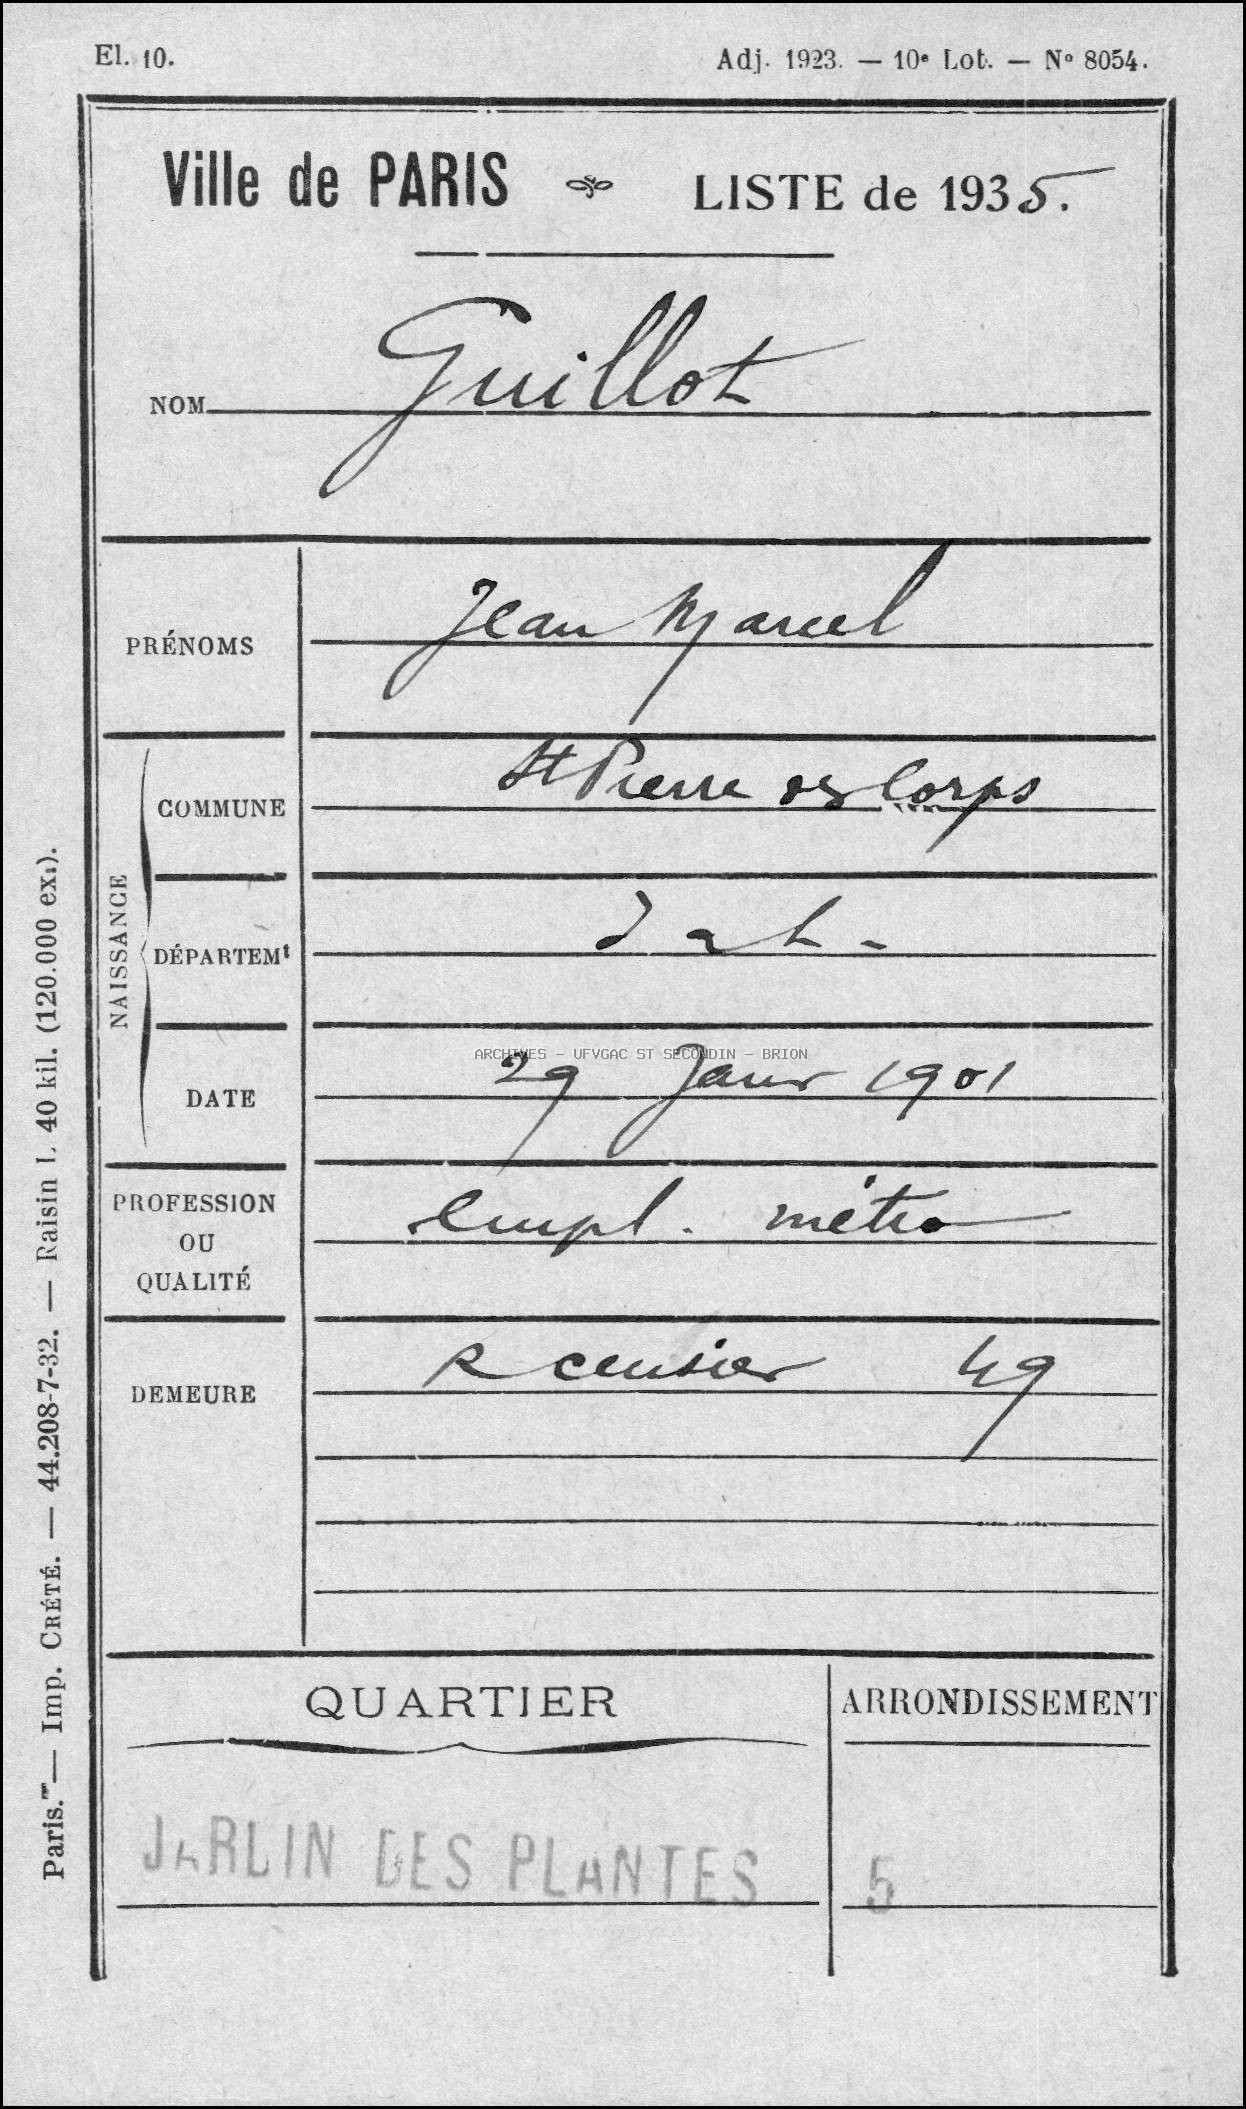 El. 10.
Adj. 1923. — 10e Lot. — No 8054.
Ville de PARIS LISTE de 1935.
NOM Guillot
PRÉNOMS Jean Marcel
NAISSANCE
COMMUNE St Pierre des Corps
DÉPARTEMt I & L.
ARCHIVES - UFVGAC ST SECONDIN - BRION
DATE 29 Janv 1901
PROFESSION
OU
QUALITÉ
empl. métro
DEMEURE R censier 49
QUARTIER ARRONDISSEMENT
JARDIN DES PLANTES 5
Paris. — Imp. CRÉTÉ. — 44.208-7-32. — Raisin l. 40 kil. (120.000 ex.).